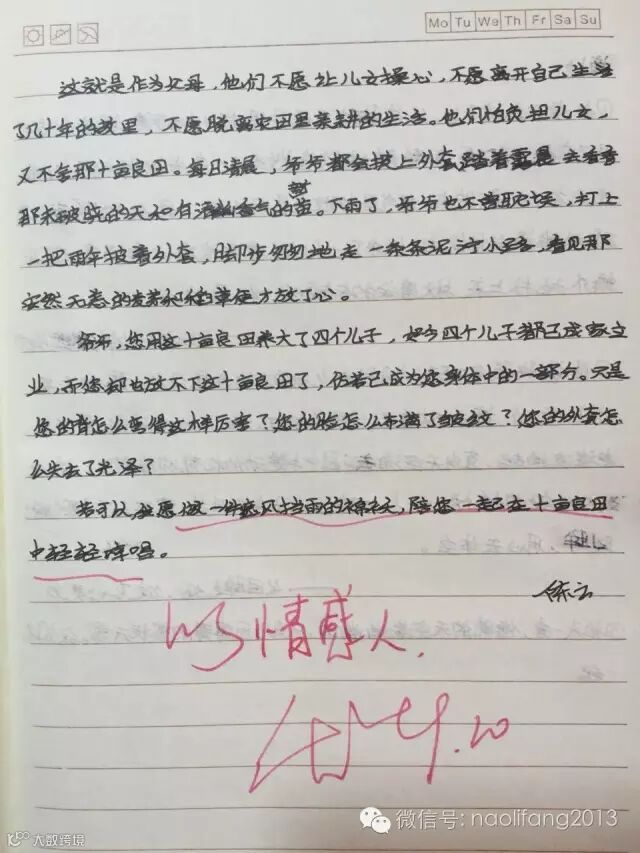 Mo Tu We Th Fr Sa Su
这就是作为父母，他们不愿让儿女操心，不愿离开自己生活
了几十年的故里，不愿脱离农田里菜耕的生活。他们怕负担儿女，
又不舍那十亩良田。每日清晨，爷爷都会披上外套踏着露晨去看看
那未破晓的天和有清香气的苗。下雨了，爷爷也不曾耽误，打上
一把雨伞披着外套，脚步匆匆地走一条条泥泞小路，看见那
安然无恙的麦荞和稻草便才放了心。
爷爷，您用这十亩良田养大了四个儿子，如今四个儿子都已成家立
业，而您却也放不下这十亩良田了，仿若已成为您身体中的一部分。只是
您的背怎么弯得这样厉害？您的脸怎么布满了皱纹？您的外套怎
么失去了光泽？
若可以，我愿做一件遮风挡雨的棉袄，陪您一起在十亩良田
中轻轻哼唱。
情感人.
.20
微信号: naolifang2013
大数跨境